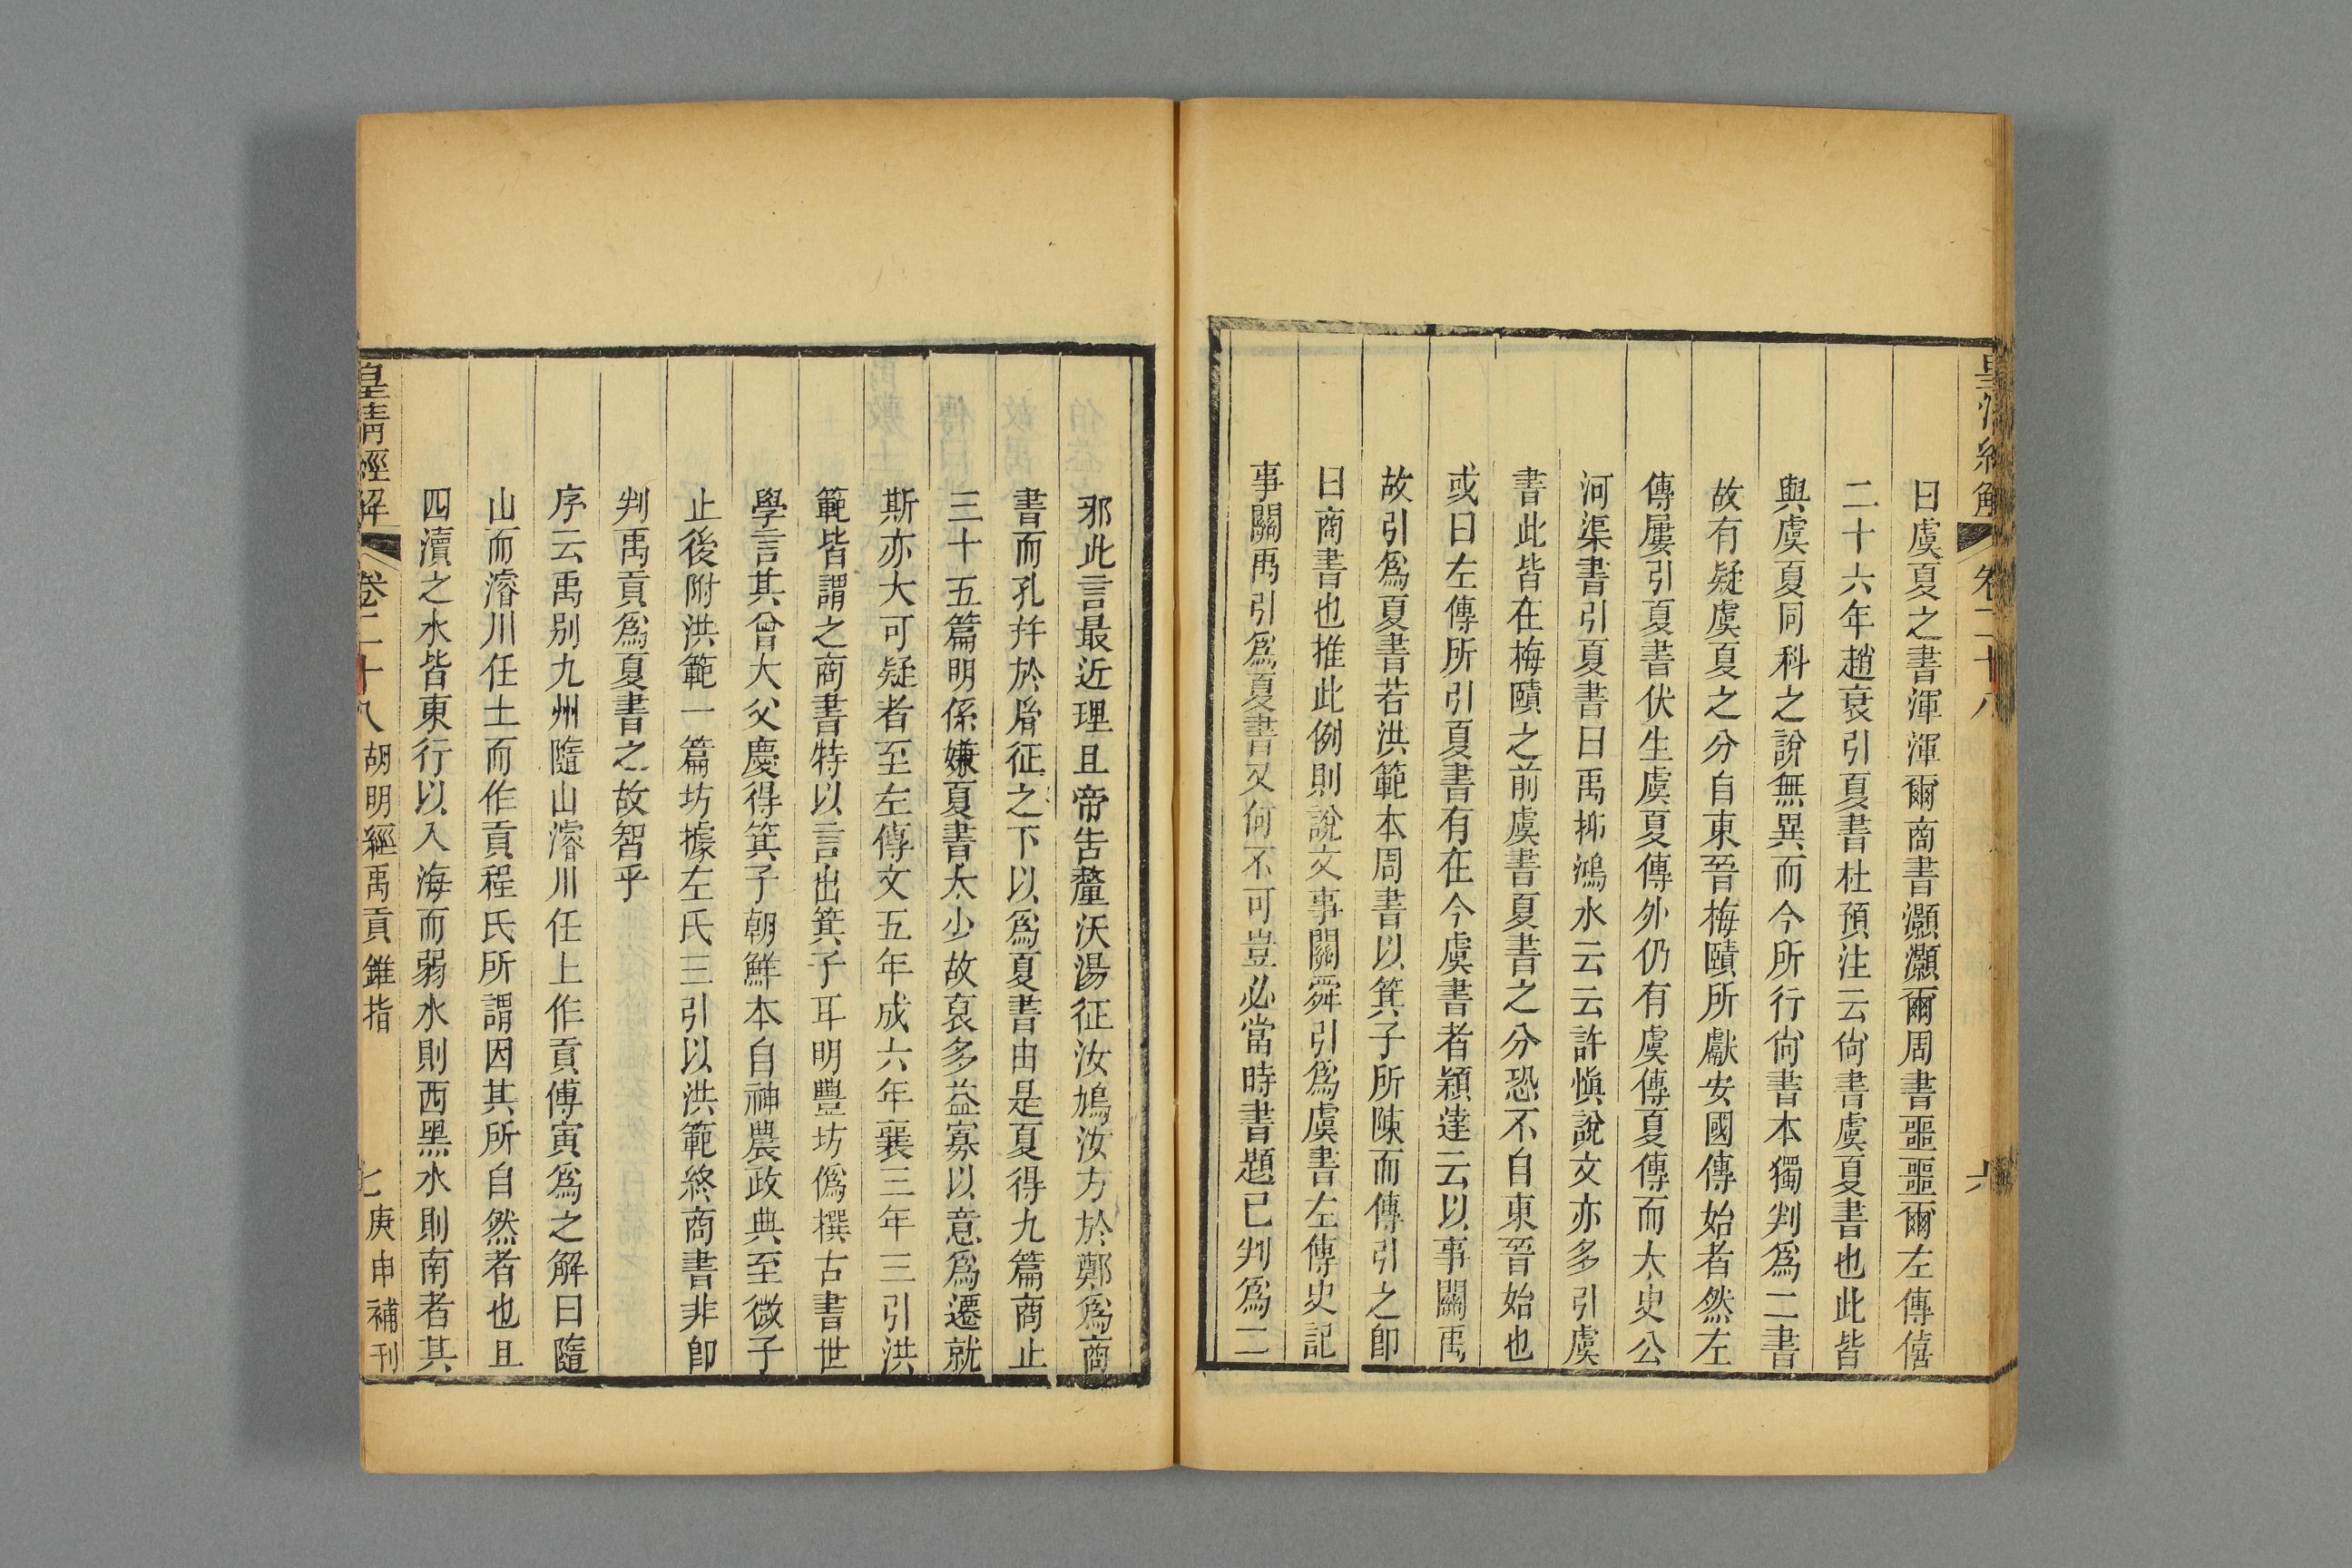 皇清經解 卷二十八 六
曰虞夏之書渾渾爾商書灝灝爾周書噩噩爾左傳僖
二十六年趙衰引夏書杜預注云尙書虞夏書也此皆
與虞夏同科之說無異而今所行尙書本獨判爲二書
故有疑虞夏之分自東晉梅賾所獻安國傳始者然左
傳屢引夏書伏生虞夏傳外仍有虞傳夏傳而太史公
河渠書引夏書曰禹抑鴻水云云許愼說文亦多引虞
書此皆在梅賾之前虞書夏書之分恐不自東晉始也
或曰左傳所引夏書有在今虞書者穎達云以事關禹
故引爲夏書若洪範本周書以箕子所陳而傳引之卽
曰商書也推此例則說文事關舜引爲虞書左傳史記
事關禹引爲夏書又何不可豈必當時書題已判爲二
邪此言最近理且帝告釐沃湯征汝鳩汝方於鄭爲商
書而孔幷於㣧征之下以爲夏書由是夏得九篇商止
三十五篇明係嫌夏書太少故裒多益寡以意爲遷就
斯亦大可疑者至左傳文五年成六年襄三年三引洪
範皆謂之商書特以言出箕子耳明豐坊僞撰古書世
學言其曾大父慶得箕子朝鮮本自神農政典至微子
止後附洪範一篇坊據左氏三引以洪範終商書非卽
判禹貢爲夏書之故智乎
序云禹別九州隨山濬川任土作貢傅寅爲之解曰隨
山而濬川任土而作貢程氏所謂因其所自然者也且
四瀆之水皆東行以入海而弱水則西黑水則南者其
皇清經解 卷二十八 胡明經禹貢錐指 七 庚申補刊